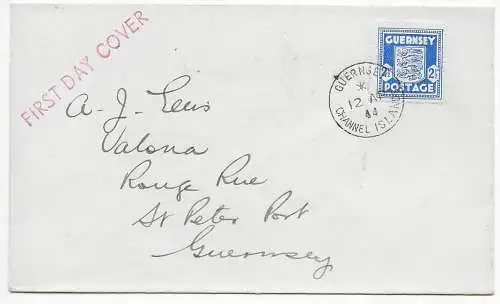 FIRST DAY COVER
GUERNSEY
2½ 2½
POSTAGE
GUERNSEY
12 AP
44
CHANNEL ISLANDS
A. J. Lewis
Valona
Rouge Rue
St Peter Port
Guernsey